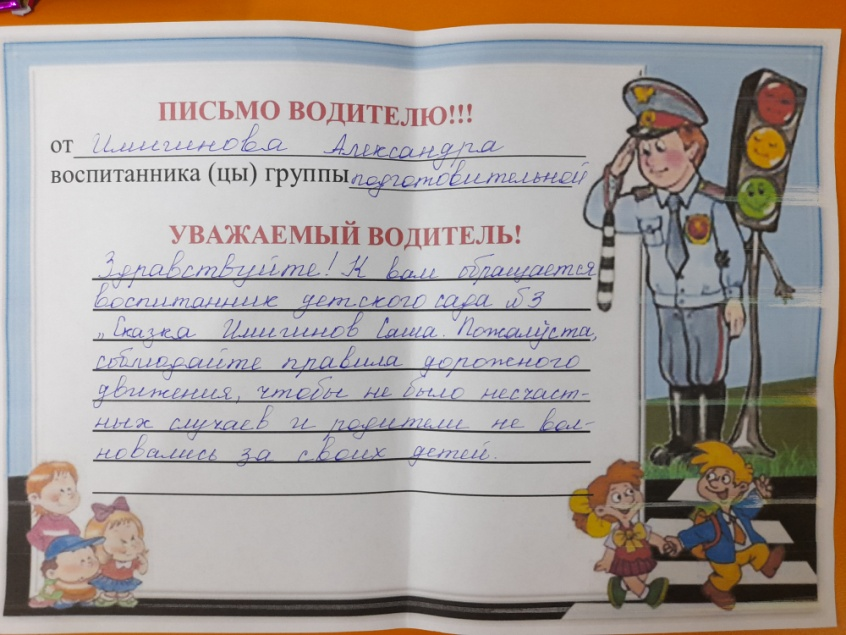 ПИСЬМО ВОДИТЕЛЮ!!!
от Имигинова Александра
воспитанника (цы) группы подготовительной
УВАЖАЕМЫЙ ВОДИТЕЛЬ!
Здравствуйте! К вам обращается
воспитанник детского сада №3
„Сказка Имигинов Саша. Пожалуйста,
соблюдайте правила дорожного
движения, чтобы не было несчаст-
ных случаев и родители не вол-
новались за своих детей.